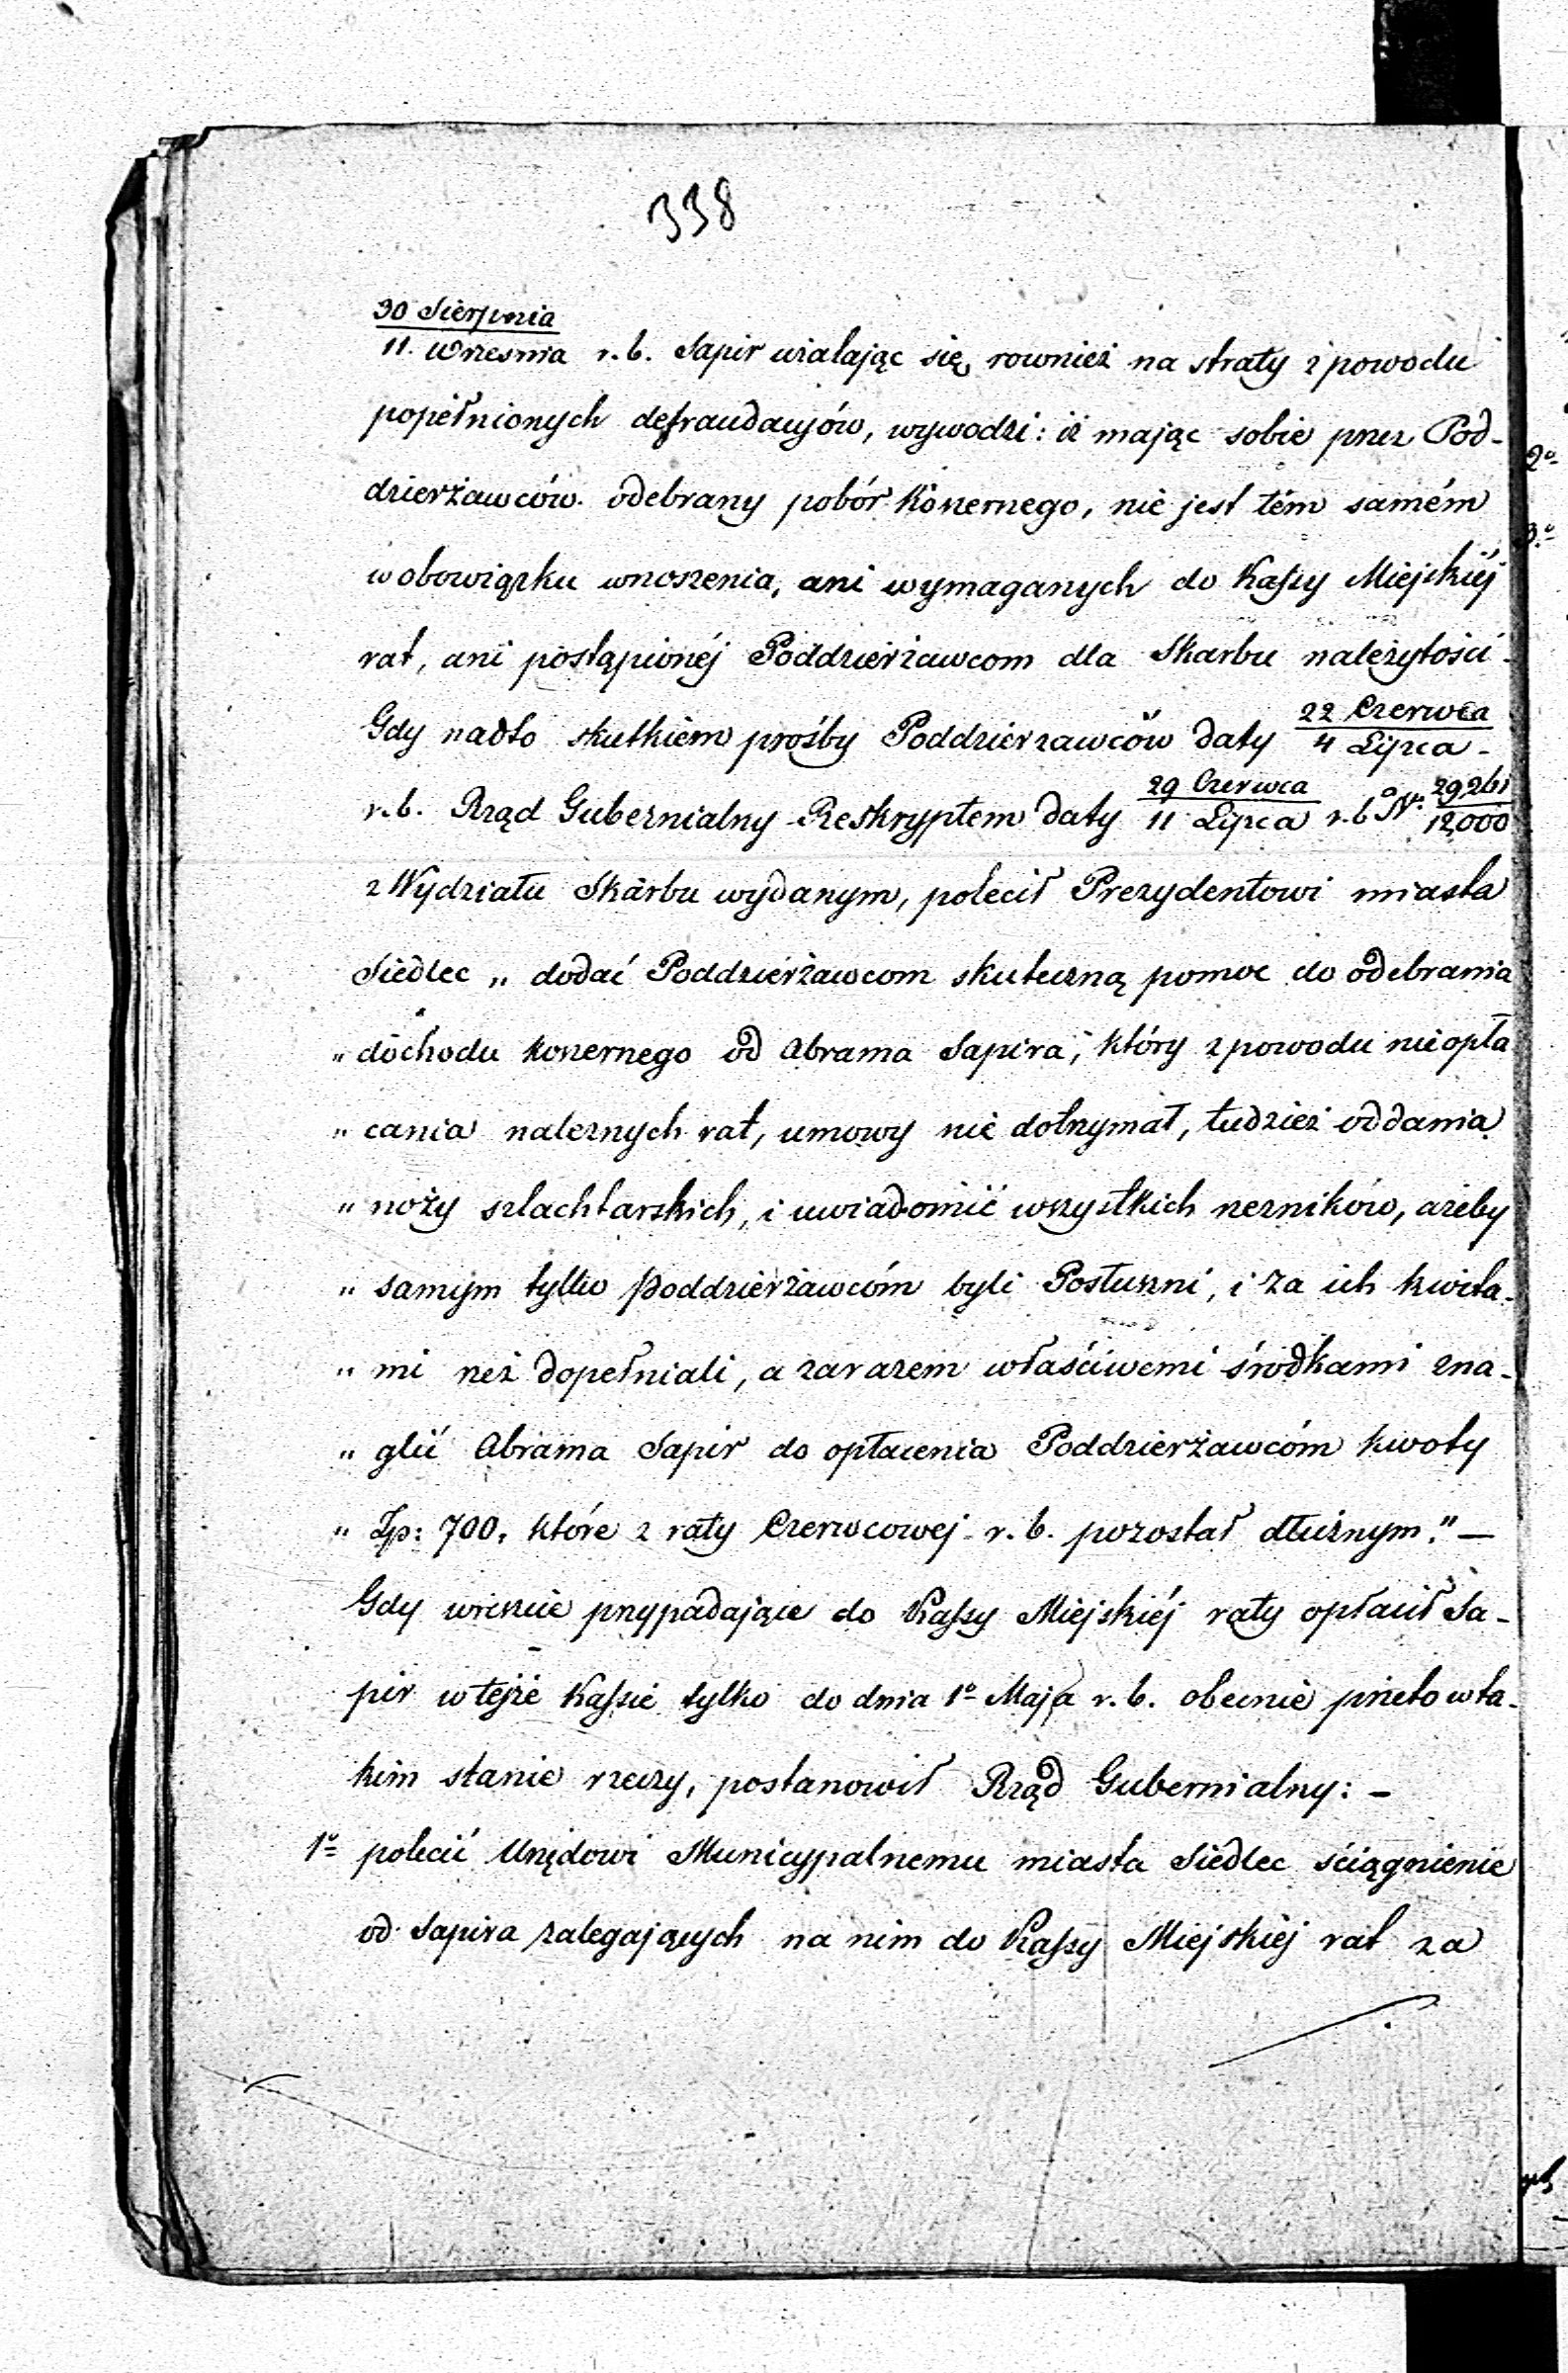 338
30 Sierpnia
11. Wrzesnia r. b. Sapir użalając się rownież na straty z powodu
popełnionych defraudacyów, wywodzi: iż mając sobie przez Pod-
dzierżawców odebrany pobór Koszernego, nie jest tém samém
w obowiązku wnoszenia, ani wymaganych do Kassy Miejskiéj
rat, ani postąpionéj Poddzierżawcom dla Skarbu należytości.
Gdy nadto skutkiem prośby Poddzierzawców daty 22 Czerwca / 4 Lipca -
r. b. Rząd Gubernialny Reskryptem daty 29 Czerwca / 11 Lipca r. b. N. 29261 / 12000
z Wydziału Skarbu wydanym, polecił Prezydentowi miasta
Siedlec „ dodać Poddzierżawcom skuteczną pomoc do odebrania
„ dochodu koszernego od Abrama Sapira, który z powodu nieopła
„ cania należnych rat, umowy nie dotrzymał, tudzież oddania
„ noży szlachtarskich, i uwiadomić wszystkich rzezników, ażeby
„ samym tylko Poddzierżawcóm byli Posłuszni, i za ich kwita-
„ mi rzeź dopełniali, a zarazem właściwemi środkami zna-
„ glić Abrama Sapir do opłacenia Poddzierżawcóm kwoty
„ Zp: 700, które z raty Czerwcowej r. b. pozostał dłużnym." —
Gdy wreszcie przypadające do Kassy Miejskiéj raty opłacił Sa-
pir w tejże Kassie tylko do dnia 1º Maja r. b. obecnie przeto w ta-
kim stanie rzeczy, postanowił Rząd Gubernialny: -
1º polecić Urzędowi Municypalnemu miasta Siedlec ściągnienie
od Sapira zalegających na nim do Kassy Miejskiéj rat za
2º
3º